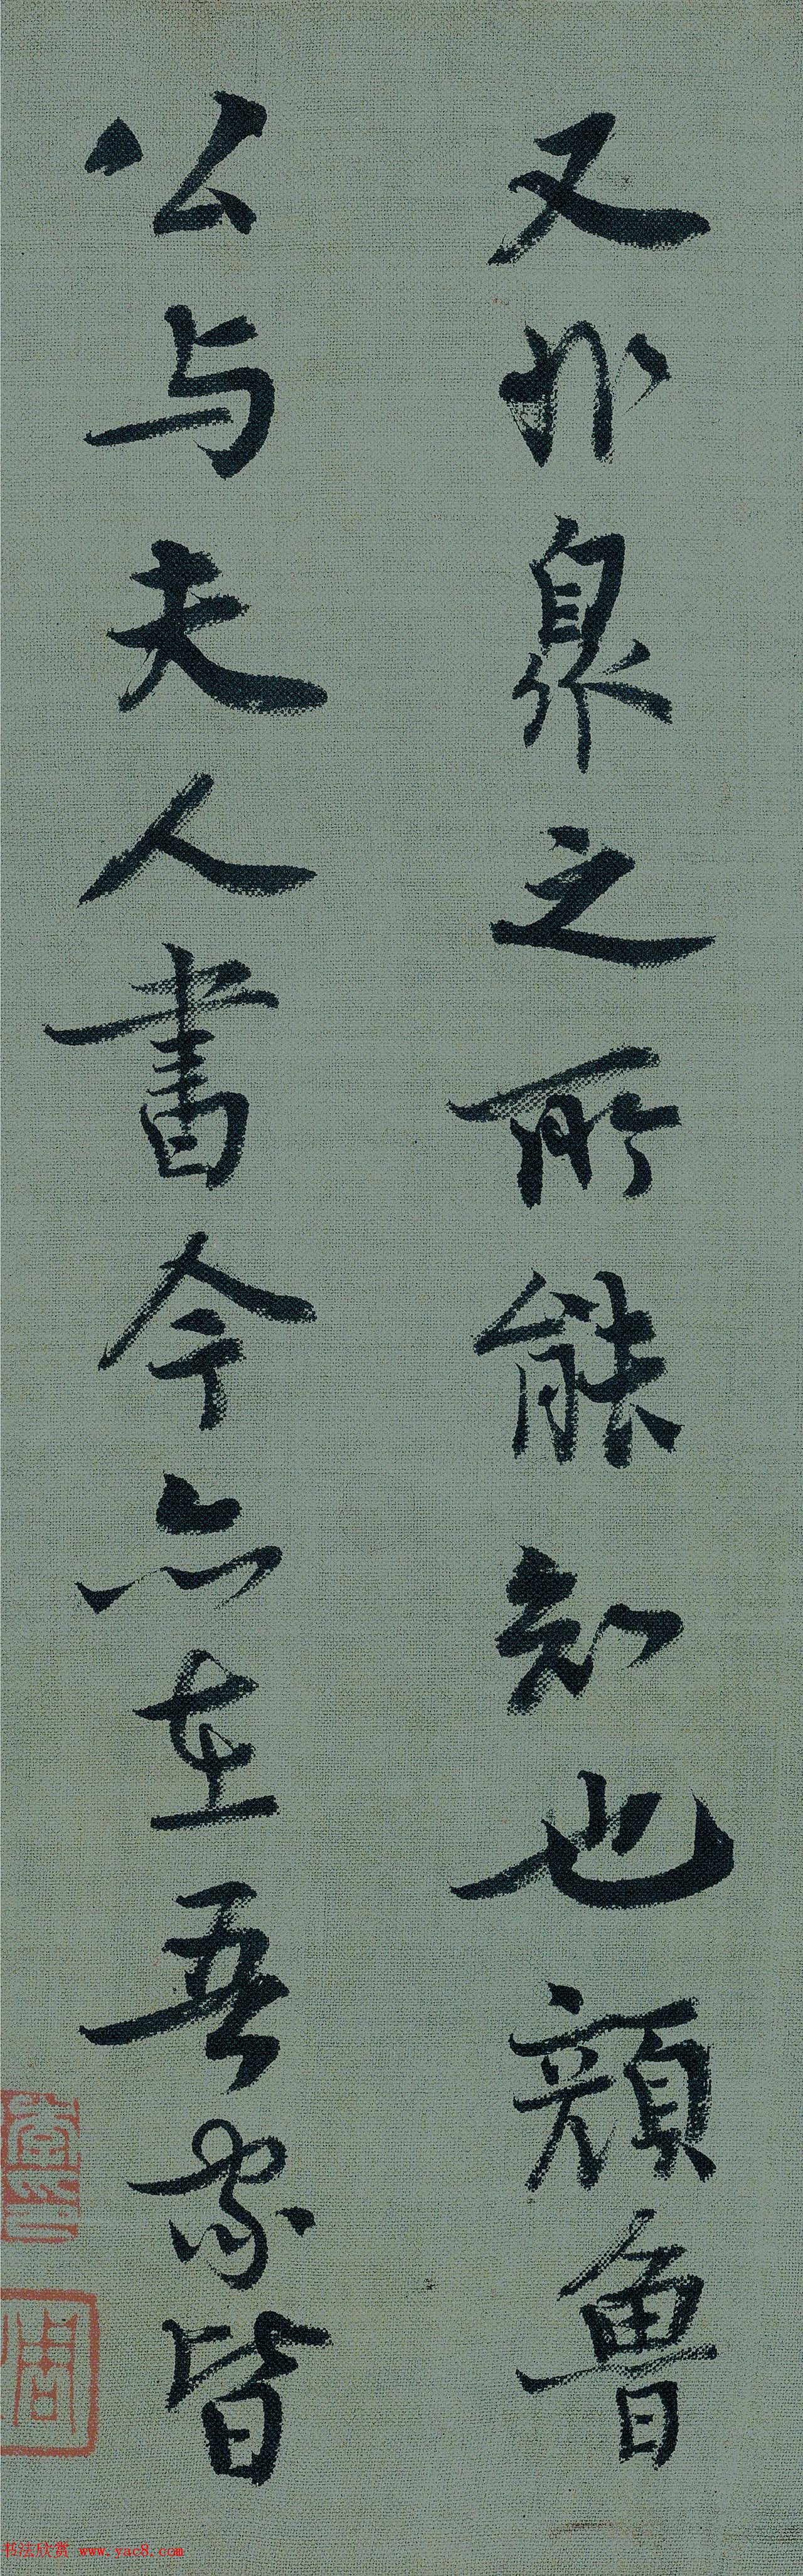 又非衆之所能知也顔魯
公与夫人書今亦在吾家皆
书法欣赏 www.yac8.com